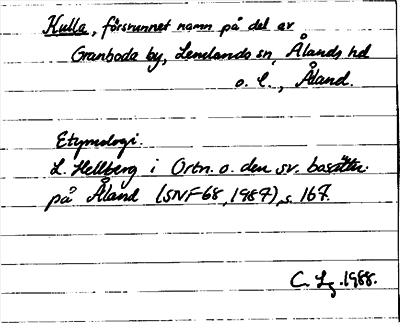 Kulla, försvunnet namn på del av
Granboda by, Lemlands sn, Ålands hd
o. l., Åland.
Etymologi.
L. Hellberg i Ortn. o. den sv. bosättn.
på Åland (SNF 68, 1987), s. 167.
C. Lg. 1988.